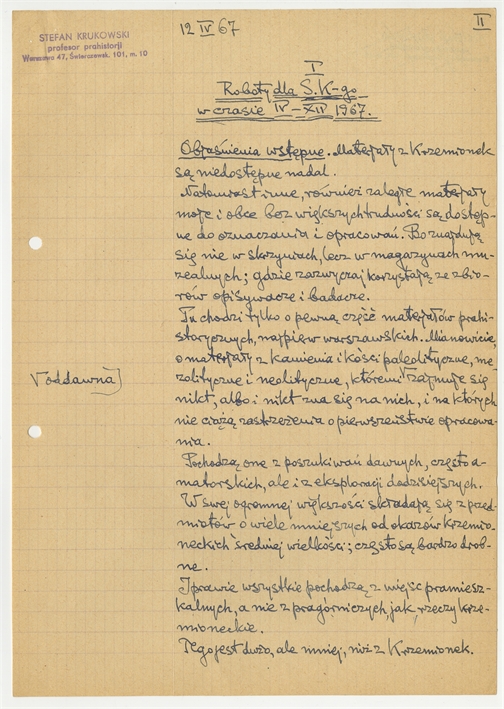 12 IV 67
II
STEFAN KRUKOWSKI
profesor prahistorji
Warszawa 47, Świerczewsk. 101, m. 10
I
Roboty dla S. K-go
w czasie IV – XII 1967.
Objaśnienia wstępne. Materjały z Krzemionek
są niedostępne nadal.
Natomiast inne, również zaległe materjały
moje i obce bez większych trudności są dostęp-
ne do oznaczania i opracowań. Bo znajdują
się nie w skrzyniach, lecz w magazynach mu-
zealnych; gdzie zazwyczaj korzystają ze zbio-
rów opisywacze i badacze.
Tu chodzi tylko o pewną część materjałów prahi-
storycznych, najpierw warszawskich. Mianowicie,
o materjały z kamienia i kości paleolityczne, me-
zolityczne i neolityczne, któremi V zajmuje się
nikt, albo i nikt zna się na nich, i na których
nie ciążą zastrzeżenia o pierwszeństwie opracowa-
nia.
V oddawna]
Pochodzą one z poszukiwań dawnych, często a-
matorskich, ale i z eksploracji dzisiejszych.
W swej ogromnej większości składają się z przed-
miotów o wiele mniejszych od okazów krzemio-
neckich średniej wielkości; często są bardzo drob-
ne.
I prawie wszystkie pochodzą z miejsc pramiesz-
kalnych, a nie z pragórniczych, jak rzeczy krze-
mioneckie.
Tego jest dużo, ale mniej, niż z Krzemionek.